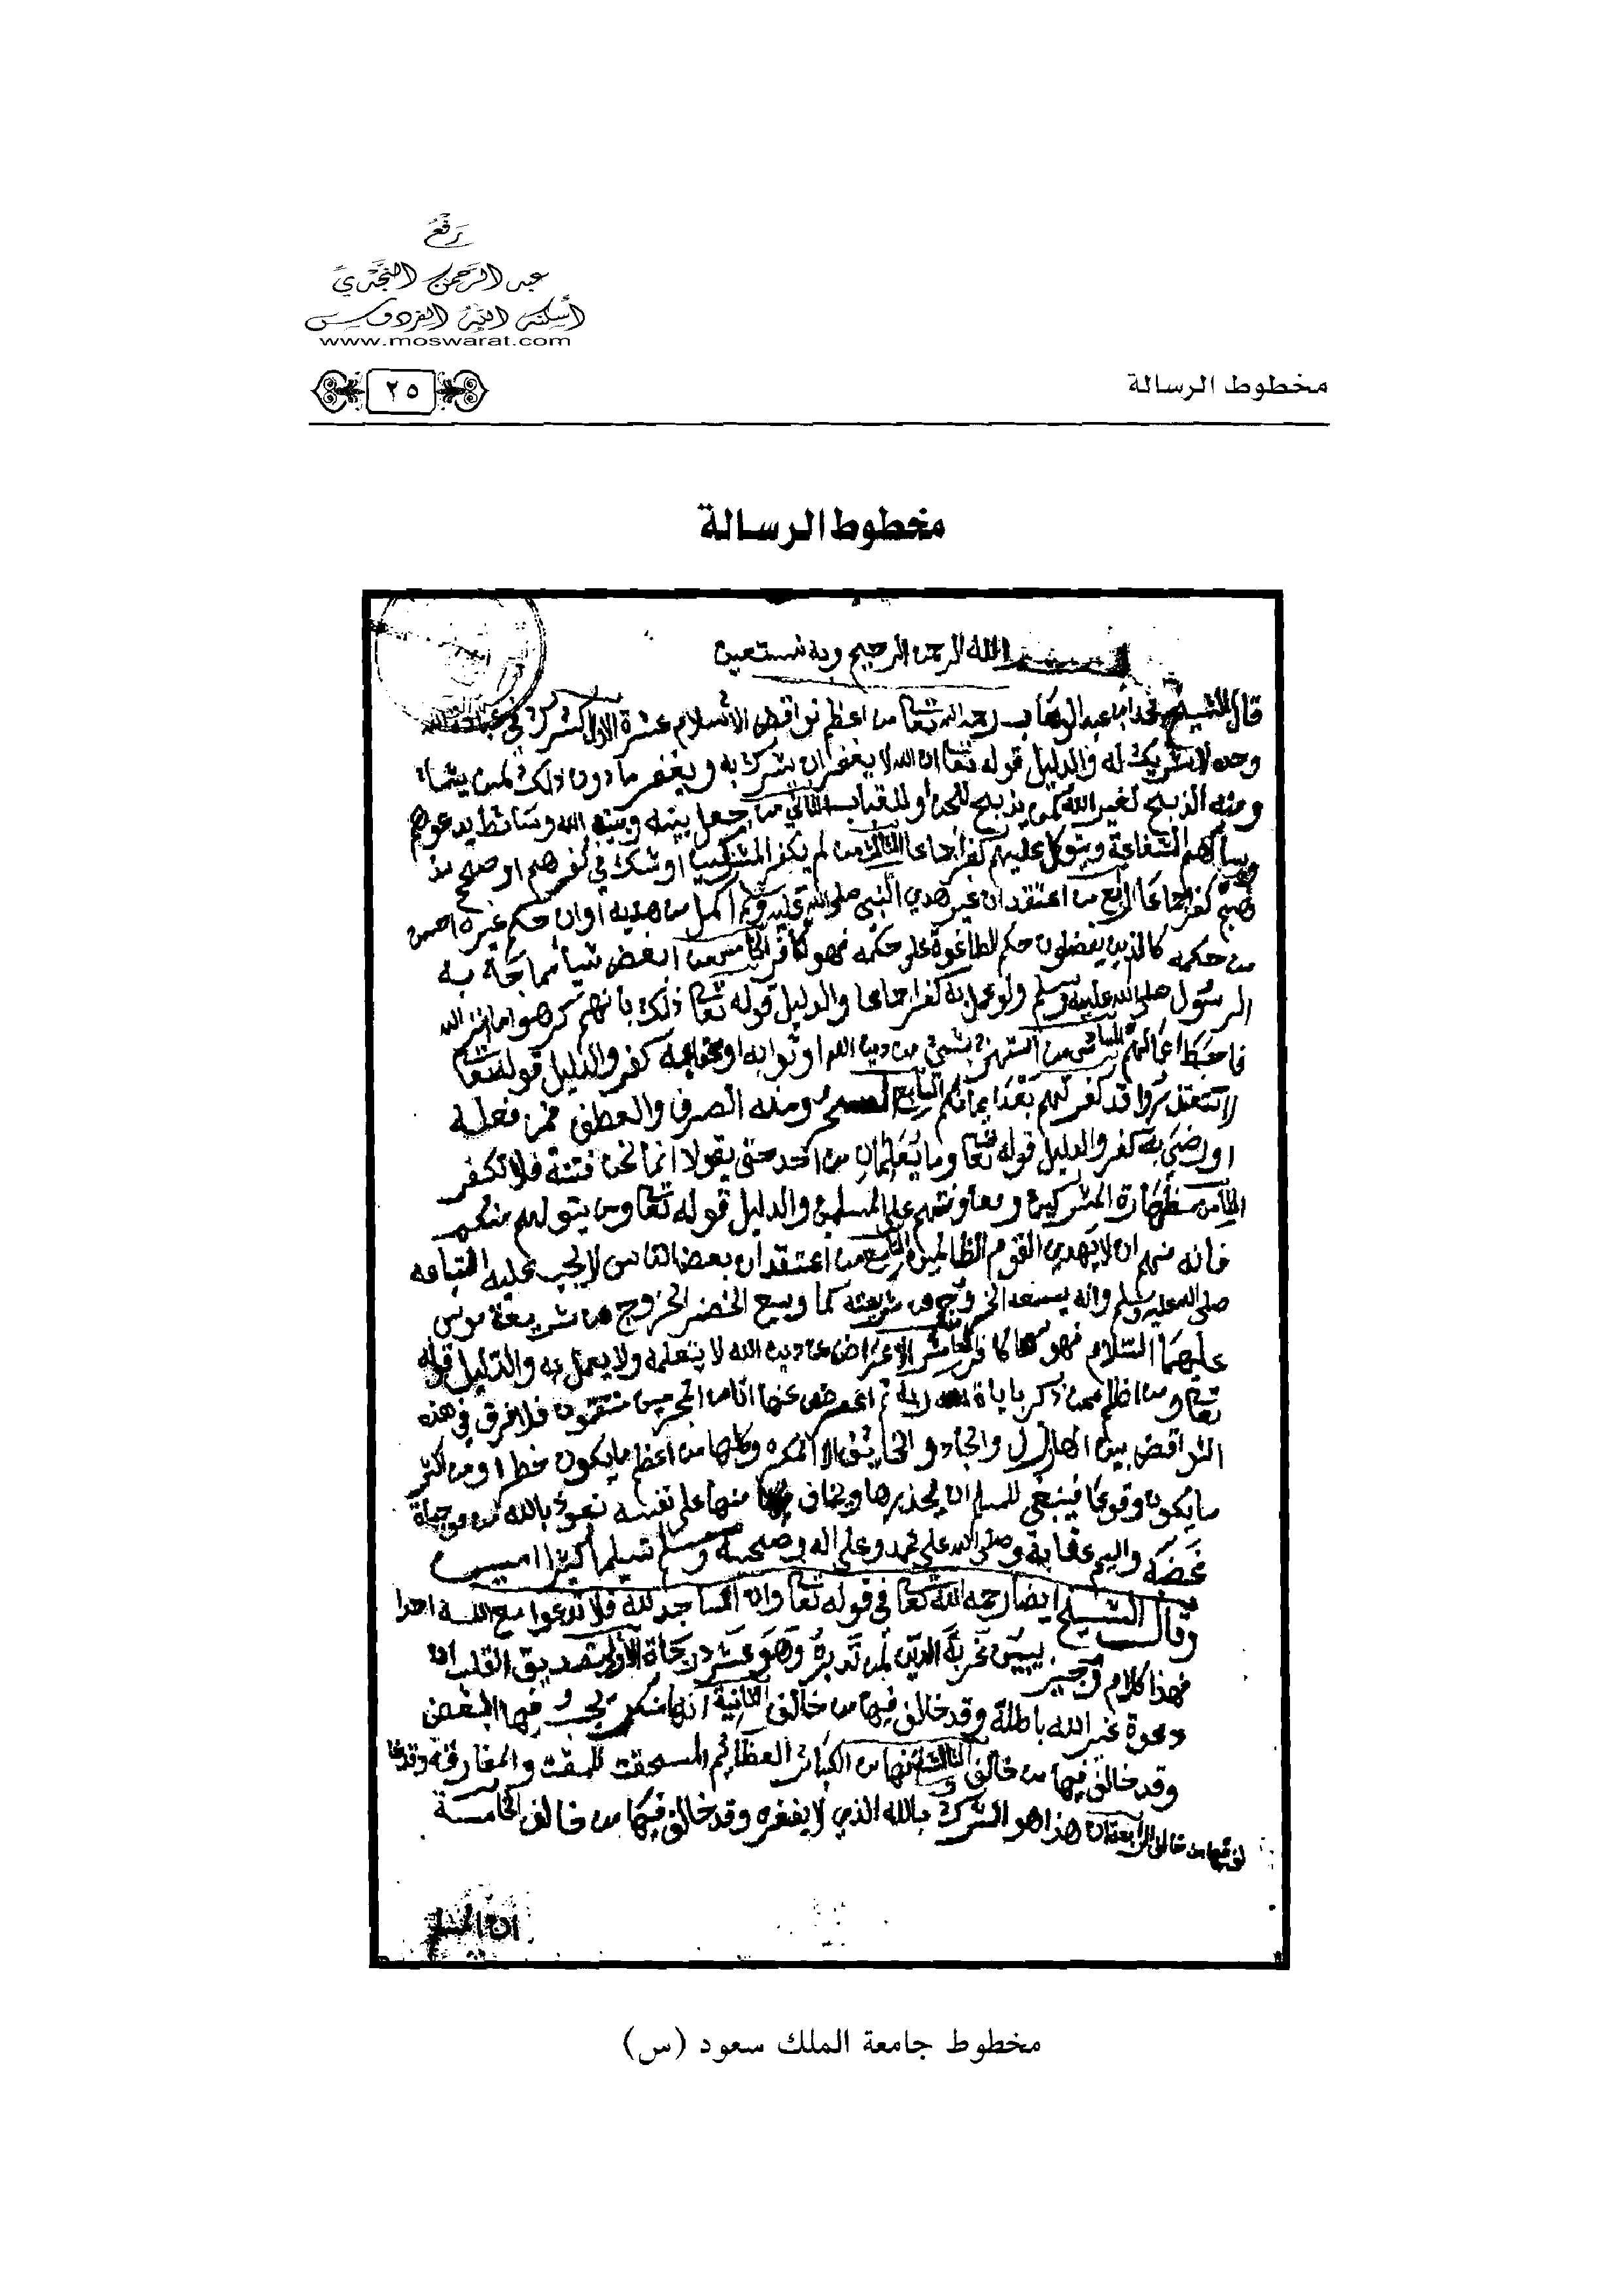 رَفْعُ
عبد الرحمن النجدي
أسكنه الله الفردوس
www.moswarat.com
مخطوط الرسالة
٢٥
مخطوط الرسالة
بسم الله الرحمن الرحيم وبه نستعين
قال الشيخ محمد ابن عبد الوهاب رحمه الله تعا من اعظم نواقض الاسلام عشرة الاول الشرك في عبادة الله
وحده لا شريك له والدليل قوله تعا ان الله لا يغفر ان يشرك به ويغفر ما دون ذلك لمن يشاء
ومنه الذبح لغير الله كمن يذبح للجن او للقباب الثاني من جعل بينه وبين الله وسائط يدعوهم
ويسألهم الشفاعة ويتوكل عليهم كفر اجماعا الثالث من لم يكفر المشركين او شك في كفرهم او صحح مذ
هبهم كفر اجماعا الرابع من اعتقد ان غير هدي النبي صلى الله عليه وسلم اكمل من هديه او ان حكم غيره احسن
من حكمه كالذين يفضلون حكم الطاغوة على حكمه فهو كافر الخامس من ابغض شيأ مما جآ به
الرسول صلى الله عليه وسلم ولو عمل به كفر اجماعا والدليل قوله تعا ذلك بأنهم كرهوا ما انزل الله
فاحبط اعمالهم السادس من استهزئ بشيئ من دين الله او ثوابه او عقابه كفر والدليل قوله تعا
لا تعتذروا قد كفرتم بعد ايمانكم السابع السحر ومنه الصرف والعطف فمن فعله
او رضي به كفر والدليل قوله تعا وما يعلمان من احد حتى يقولا انما نحن فتنة فلا تكفر
الثامن مظهارة المشركين ومعاونتهم على المسلمين والدليل قوله تعا ومن يتولهم منكم
فانه منهم ان لا يهدي القوم الظالمين التاسع من اعتقد ان بعض الناس لا يجب عليه اتباعه
صلى الله عليه وسلم وانه يسعه الخروج من شريعته كما وسع الخضر الخروج من شريعة موسى
عليهما السلام فهو كافر العاشر الاعراض عن دين الله لا يتعلمه ولا يعمل به والدليل قوله
تعا ومن اظلم ممن ذكر باياة ربه ثم اعرض عنها انا من المجرمين منتقمون فلا فرق في هذه
النواقض بين الهازل والجاد والخايف الا المكره وكلها من اعظم ما يكون خطرا ومن اكثر
ما يكون وقوعا فينبغي للمسلم ان يحذرها ويخاف منها على نفسه نعوذ بالله من موجباة
غضبه واليم عقابه وصلى الله على محمد وعلى اله وصحبه وسلم تسليما كثيرا امين
وقال الشيخ ايضا رحمه الله تعا في قوله تعا وان المساجد لله فلا تدعوا مع الله احدا
فهذا كلام وجيز يبين غربة الدين لمن تدبره وهو عشر درجاة الاولى تصديق القلب ان
دعوة غير الله باطلة وقد خالف فيها من خالف الثانية انها منكر يجب فيها البغض
وقد خالف فيها من خالف الثالثة انها من الكبائر العظائم المستحقت للمقت والمفارقة وقد خا
لف فيها من خالف الرابعة ان هذا هو الشرك بالله الذي لا يغفره وقد خالف فيها من خالف الخامسة
ان المسلم
مخطوط جامعة الملك سعود (س)